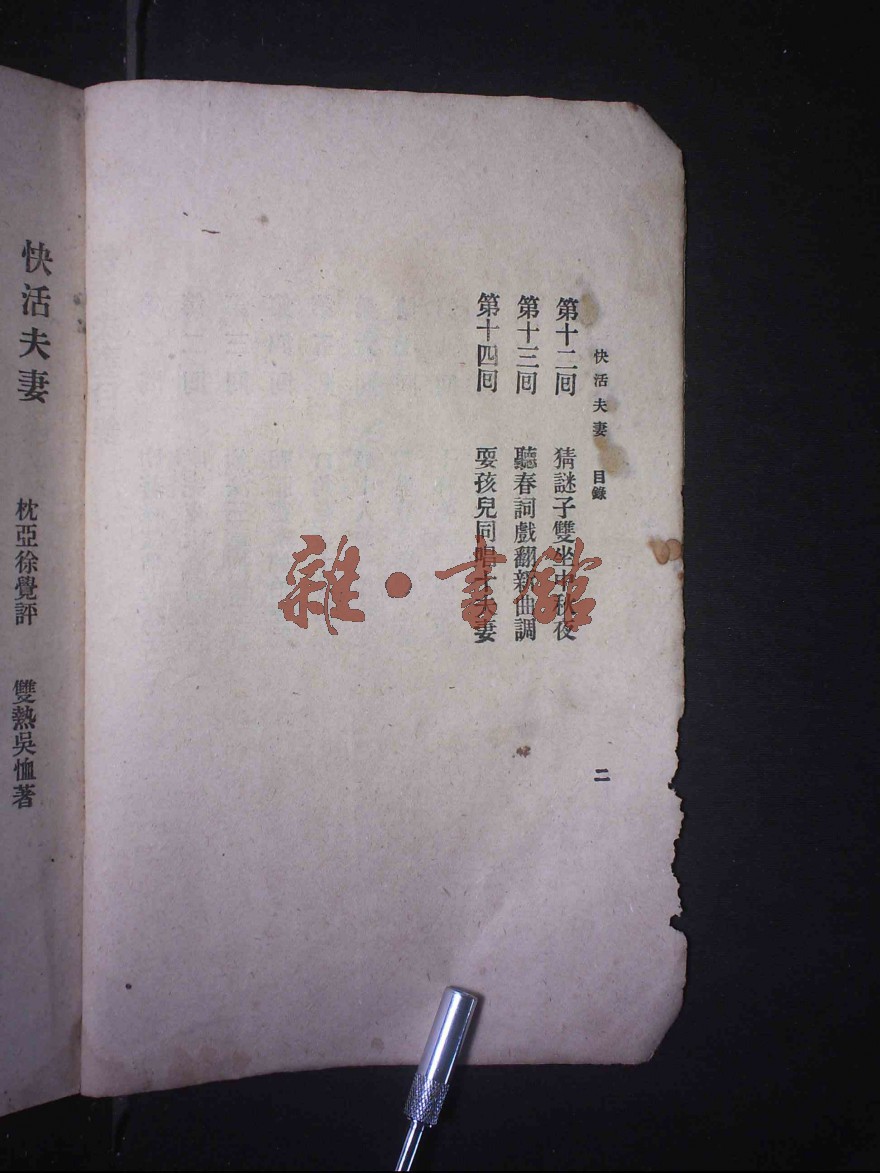 快活夫妻 目錄
第十二囘 猜謎子雙坐中秋夜
第十三囘 聽春詞戲翻新曲調
第十四囘 耍孩兒同唱才夫妻
二
快活夫妻
枕亞徐覺評 雙熱吳恤著
雜·書館